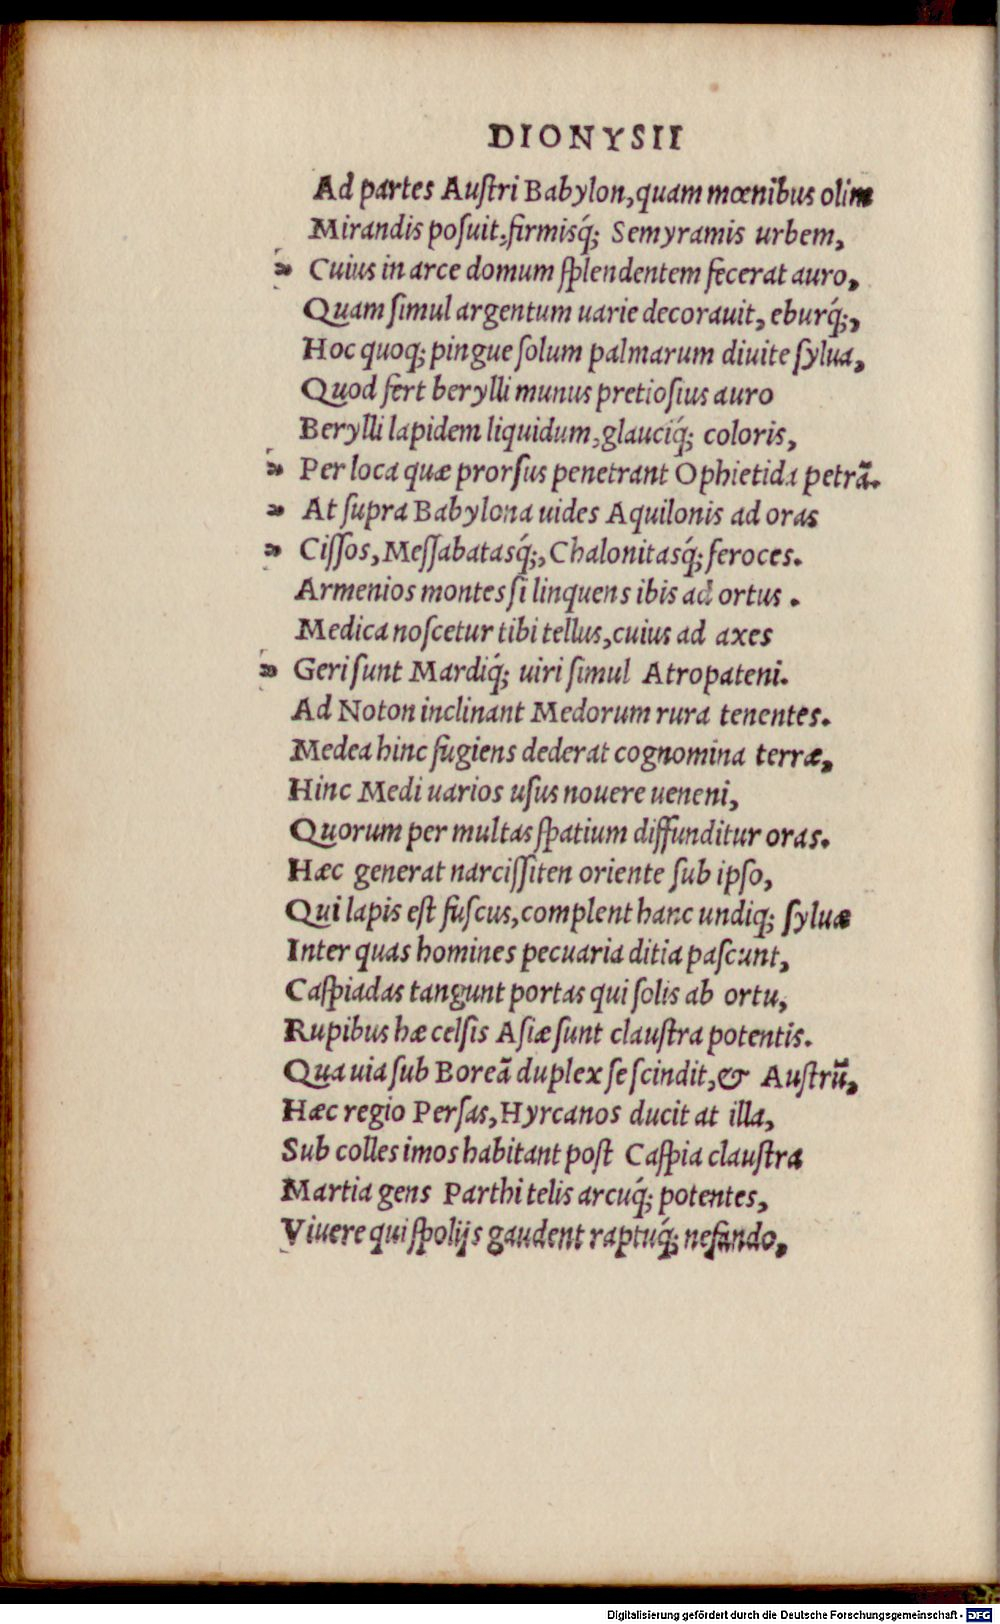 DIONYSII
Ad partes Auſtri Babylon, quam mœnibus olim
Mirandis poſuit, firmisq́; Semyramis urbem,
Cuius in arce domum ſplendentem fecerat auro,
Quam ſimul argentum uarie decorauit, eburq́;,
Hoc quoq; pingue ſolum palmarum diuite ſylua,
Quod fert berylli munus pretioſius auro
Berylli lapidem liquidum, glauciq́; coloris,
Per loca quæ prorſus penetrant Ophietida petrã.
At ſupra Babylona uides Aquilonis ad oras
Ciſſos, Meſſabatasq́;, Chalonitasq́; feroces.
Armenios montes ſi linquens ibis ad ortus .
Medica noſcetur tibi tellus, cuius ad axes
Geri ſunt Mardiq́; uiri ſimul Atropateni.
Ad Noton inclinant Medorum rura tenentes.
Medea hinc fugiens dederat cognomina terræ,
Hinc Medi uarios uſus nouere ueneni,
Quorum per multas ſpatium diffunditur oras.
Hæc generat narciſſiten oriente ſub ipſo,
Qui lapis eſt fuſcus, complent hanc undiq; ſyluæ
Inter quas homines pecuaria ditia paſcunt,
Caſpiadas tangunt portas qui ſolis ab ortu,
Rupibus hæ celſis Aſiæ ſunt clauſtra potentis.
Qua uia ſub Boreã duplex ſe ſcindit, & Auſtrũ,
Hæc regio Perſas, Hyrcanos ducit at illa,
Sub colles imos habitant poſt Caſpia clauſtra
Martia gens Parthi telis arcuq́; potentes,
Viuere qui ſpolijs gaudent raptuq́; nefando,
Digitalisierung gefördert durch die Deutsche Forschungsgemeinschaft - DFG